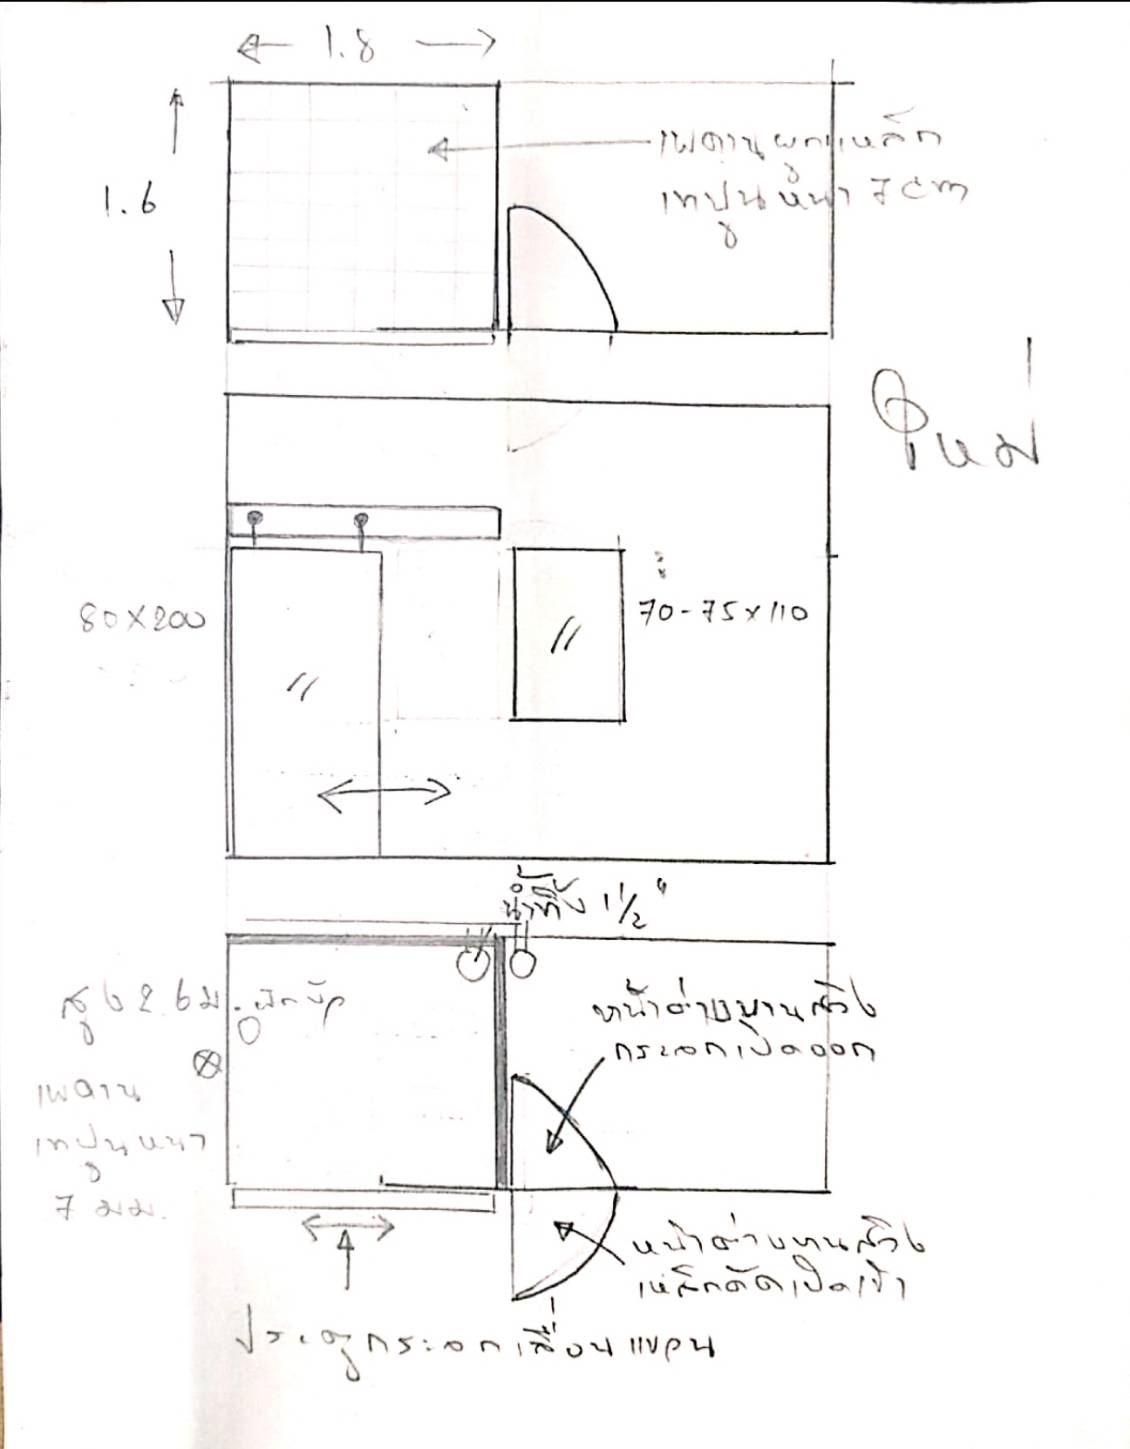 1.8
เพดานผูกเหล็ก
เทปูนหนา 7 cm
1.6
ใหม่
80x200
70-75x110
น้ำทิ้ง 1 1/2"
สูง 2.6 ม.
ฝักบัว
หน้าต่างบานสวิง
กระจกเปิดออก
เพดาน
เทปูนหนา
7 มม.
หน้าต่างบานสวิง
เหล็กดัดเปิดเข้า
ประตูกระจกเลื่อนแขวน